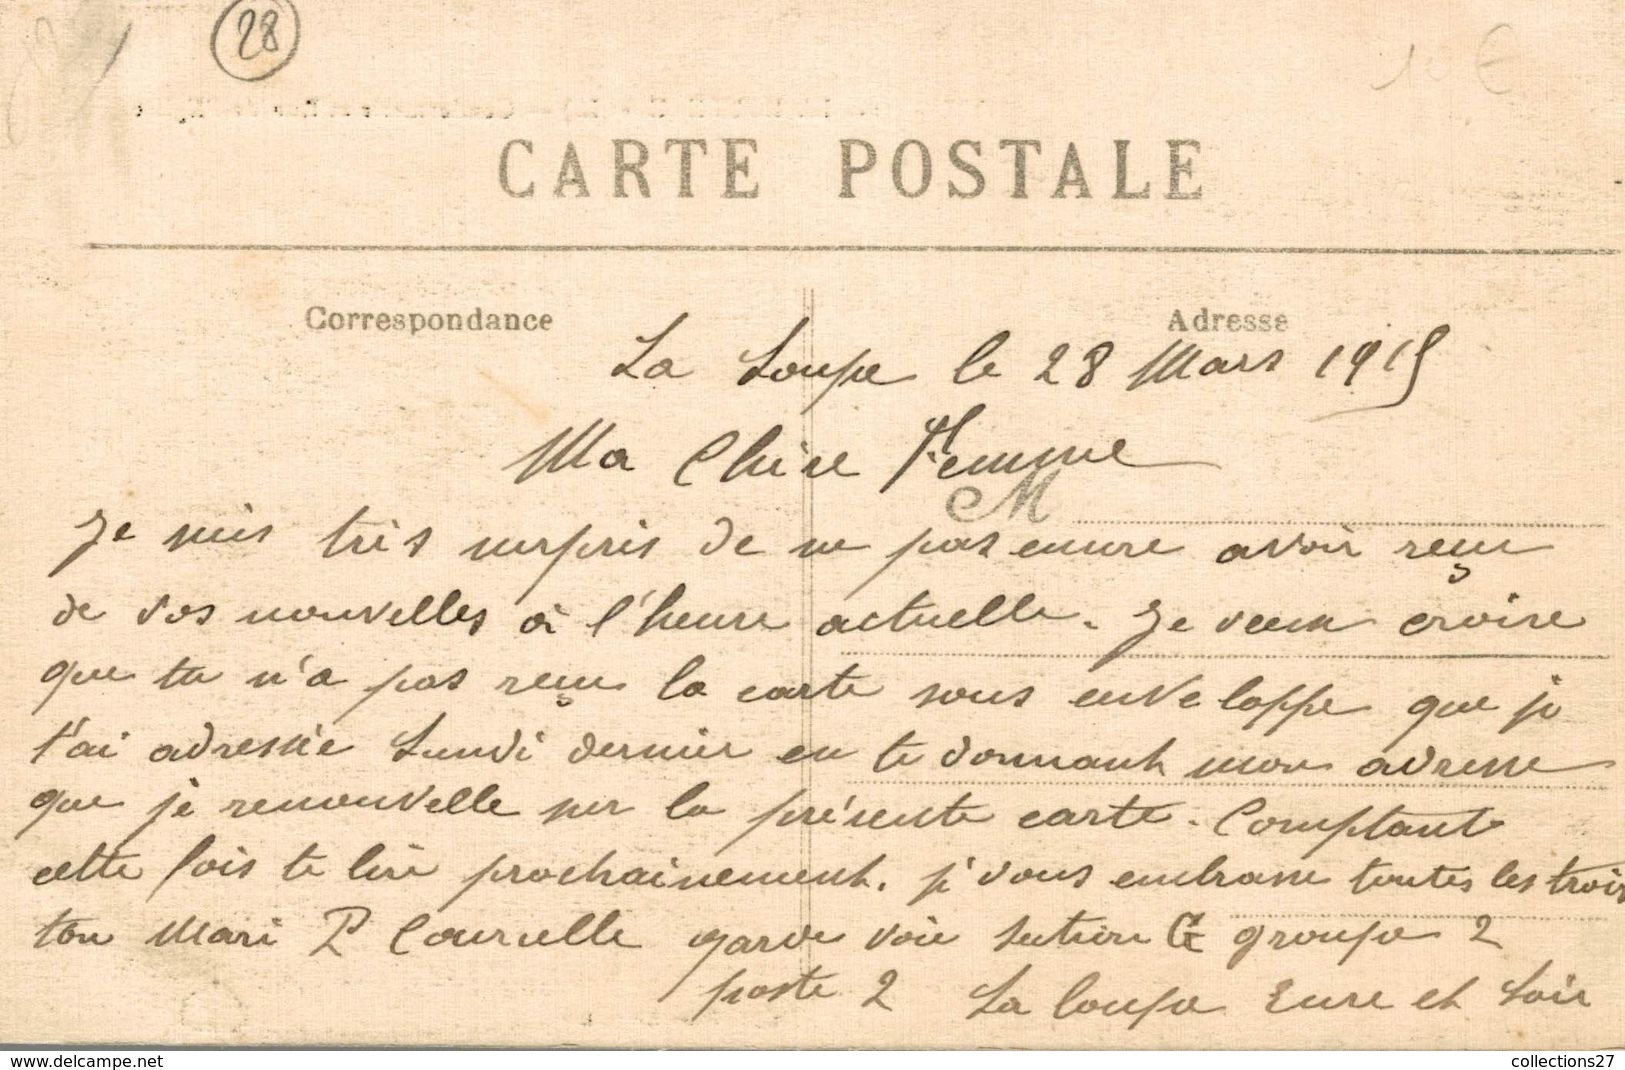 28
10 €
CARTE POSTALE
Correspondance
Adresse
La Loupe le 28 Mars 1915
Ma Chère Femme
M
Je suis très surpris de ne pas encore avoir reçu
de vos nouvelles à l'heure actuelle. Je veux croire
que tu n'a pas reçu la carte sous enveloppe que je
t'ai adressée Lundi dernier en te donnant mon adresse
que je renouvelle sur la présente carte. Comptant
cette fois te lire prochainement. je vous embrasse toutes les trois
ton Mari P Courcelle garde voie section G groupe 2
poste 2 La Loupe Eure et Loir
delcampe.net
collections27